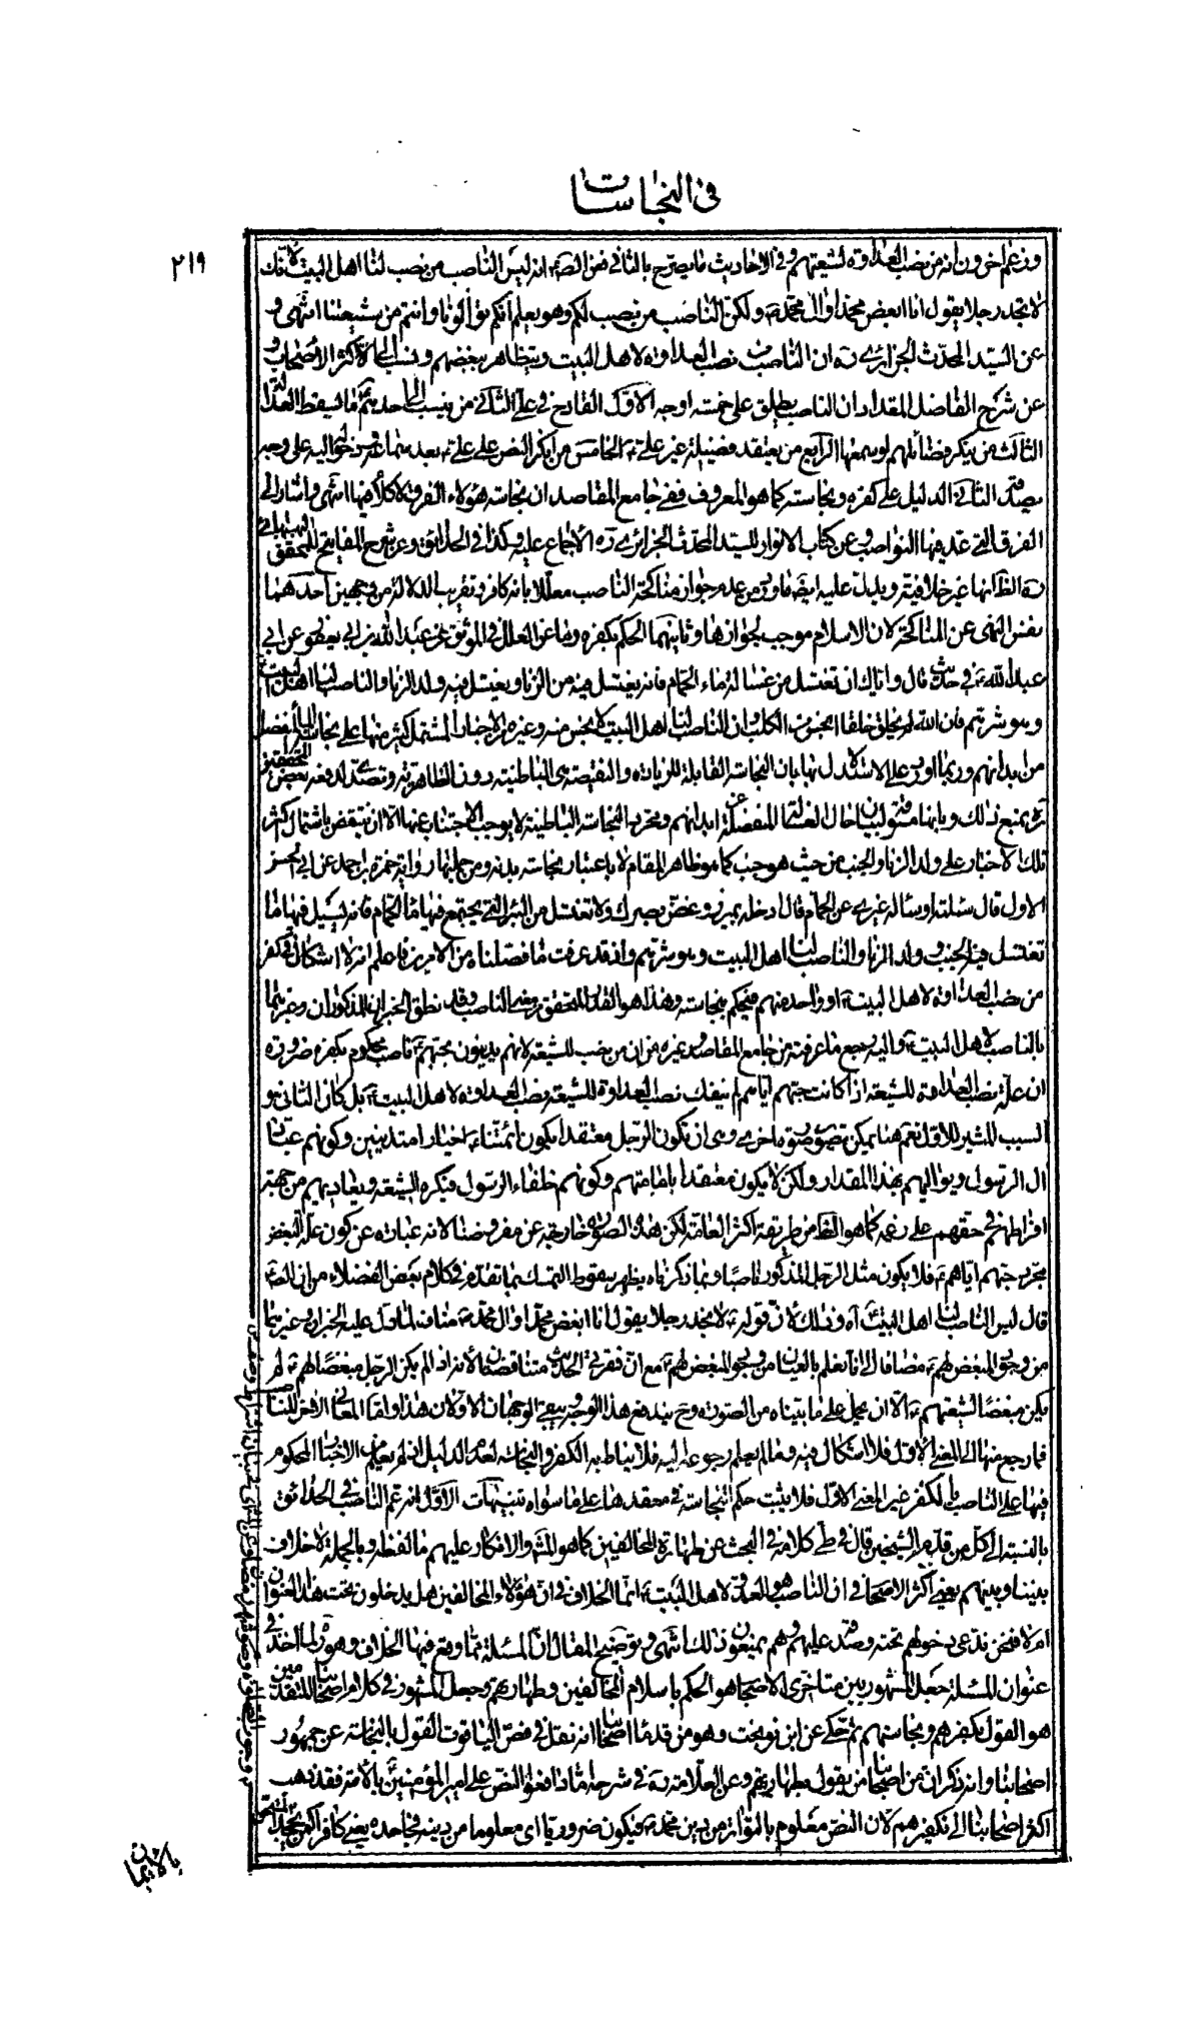 في النجاسات
٢١٩
وزعم اخرون انه من نصب العداوة لشيعتهم وفي الاحاديث ما يصرح بالثاني فعن الصادق انه ليس الناصب من نصب لنا اهل البيت لانك
لا تجد رجلا يقول انا ابغض محمدا وال محمد ولكن الناصب من نصب لكم وهو يعلم انكم تتولونا وانتم من شيعتنا انتهى و
عن السيد المحدث الجزائري ره ان الناصب من نصب العداوة لاهل البيت وتظاهر ببغضهم ونسب الى اكثر الاصحاب و
عن شرح الفاضل المقداد ان الناصب يطلق على خمسة اوجه الاول القادح في علي الثاني من ينسب الى احدهم ما يسقط العدالة
الثالث من ينكر فضائلهم لو سمعها الرابع من يعتقد فضيلة غير علي الخامس من انكر النص على علي بعد سماعه او وصوله اليه على وجه
يصدقه الثاني الدليل على كفره ونجاسته كما هو المعروف ففي جامع المقاصد ان نجاسة هؤلاء الفرق لا كلام فيها انتهى واشار الى
الفرق التي عد فيها النواصب وعن كتاب الانوار للسيد المحدث الجزائري ره الاجماع عليه وكذا في الحدائق وعن شرح المفاتيح للمحقق البهبهاني
ره الظ انها غير خلافية ويدل عليه ايضا ما ورد من عدم جواز مناكحة الناصب معللا بانه كافر وتقريب الدلالة من وجهين احدهما
نفس النهي عن المناكحة لان الاسلام موجب لجوازها وثانيهما الحكم بكفره وما عن العلل في الموثق عن عبد الله بن ابي يعفور عن ابي
عبد الله في حديث قال واياك ان تغتسل من غسالة ماء الحمام فانه يغتسل فيه من الزنا ويغتسل فيه ولد الزنا والناصب لنا اهل البيت
وهو شرهم فان الله لم يخلق خلقا انجس من الكلب وان الناصب لنا اهل البيت لانجس منه وغيره من الاخبار المشتمل كثير منها على نجاسة الماء المنفصل
من ابدانهم وربما اورد على الاستدلال بها بان النجاسة القابلة للزيادة والنقيصة هي الباطنية دون الظاهرية وتصدى لدفعه بعض المحققين
ره بمنع ذلك وبانها مسوقة لبيان حال الغسالة المنفصلة عن ابدانهم ومجرد النجاسة الباطنية لا يوجب الاجتناب عنها الا ان ينتقض باشتمال اكثر
تلك الاخبار على ولد الزنا والجنب من حيث هو جنب كما هو ظاهر المقام لا باعتبار نجاسة بدنه ومن جملتها رواية حمزة بن احمد عن ابي الحسن
الاول قال سئلته او سأله غيري عن الحمام قال ادخله بميزر وغض بصرك ولا تغتسل من البئر التي يجتمع فيها ماء الحمام فانه يسيل فيها ما
تغتسل فيه الجنب وولد الزنا والناصب لنا اهل البيت وهو شرهم واذ قد عرفت ما فصلناه من الامرين فاعلم انه لا اشكال في كفر
من نصب العداوة لاهل البيت او واحد منهم فيحكم بنجاسته وهذا هو القدر المتحقق من معنى الناصب وقد نطق الخبران المذكوران وغيرهما
بالناصب لاهل البيت واليه يرجع ما عرفته من جامع المقاصد وغيره من ان من نصب للشيعة لانهم يدينون بحبهم ناصب محكوم بكفره ضرورة
ان علة نصب العداوة للشيعة اذا كانت حبهم اياهم لم ينفك نصب العداوة للشيعة من نصب العداوة لاهل البيت بل كان الثاني هو
السبب المشير للاول نعم هنا يمكن تصوير صورة اخرى وهي ان تكون الرجل معتقدا بكون ائمتنا اخيارا متدينين وكونهم
ال الرسول ويواليهم بهذا المقدار ولكن لا يكون معتقدا بامامتهم وكونهم خلفاء الرسول فيكره الشيعة ويعاديهم من جهة
افراطهم في حقهم على زعمه كما هو الظ من طريقة اكثر العامة لكن هذه الصورة خارجة عن مفروضنا لانه عبارة عن كون علة البغض
مجرد حبهم اياهم فلا يكون مثل الرجل المذكور ناصبا وبما ذكرناه يظهر سقوط التمسك بما تقدم في كلام بعض الفضلاء من ان الصادق
قال ليس الناصب لنا اهل البيت اه وذلك لان قوله لا تجد رجلا يقول انا ابغض محمدا وال محمد مناف لما دل عليه الخبران وغيرهما
من وجود المبغض لهم مضافا الى انا نعلم بالعيان من وجود المبغض لهم مع ان فقرتي الحديث متناقضتان لانه اذا لم يكن الرجل مبغضا لهم لم
يكن مبغضا لشيعتهم الا ان يحمل على ما بيناه من الصورة وح يندفع هذا الوجه ويبقى الوجهان الاولان هذا واما المعاني الاخر للناصب
فما رجع منها الى المعنى الاول فلا اشكال فيه وما لم يعلم رجوعه اليه فلا يناط به الكفر والنجاسة لعدم الدليل اذ لم يعلم من الاخبار المحكوم
فيها على الناصب بالكفر غير المعنى الاول فلا يثبت حكم النجاسة في معقدها على ما سواه تنبيهات الاول انه زعم الناصب في الحدائق
بالنسبة الى كل من قدم الشيخين قال في طي كلامه في البحث عن طهارة المخالفين كما هو المشهور والانكار عليهم ما لفظه وبالجملة لا خلاف
بيننا وبينهم يعني اكثر الاصحاب في ان الناصب هو العدو لاهل البيت انما الخلاف في ان هؤلاء المخالفين هل يدخلون تحت هذا العنوان
ام لا فنحن ندعي دخولهم تحته وصدقه عليهم وهم يمنعون ذلك انتهى وتوضيح المقال ان المسئلة مما وقع فيها الخلاف وهو لما اخذ في
عنوان المسئلة جعل المشهور بين متاخري الاصحاب هو الحكم باسلام المخالفين وطهارتهم وجعل المشهور في كلام اصحابنا المتقدمين
هو القول بكفرهم ونجاستهم ثم حكى عن ابن نوبخت وهو من قدماء اصحابنا انه نقل في فص الياقوت القول بالنجاسة عن جمهور
اصحابنا وانه ذكر ان من اصحابنا من يقول بطهارتهم وعن العلامة ره في شرحه اما دافعوا النص على امير المؤمنين بالامامة فقد ذهب
اكثر اصحابنا الى تكفيرهم لان النص معلوم بالتواتر من دين محمد فيكون ضروريا اى معلوما من دينه فجاحده يعني كافرا كمن يجحد
بالايمان